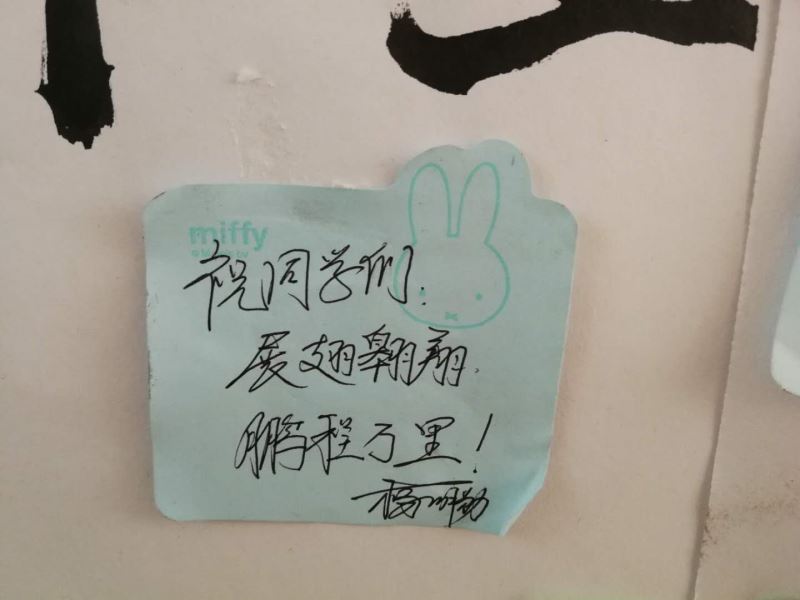 miffy
祝同学们:
展翅翱翔.
鹏程万里!